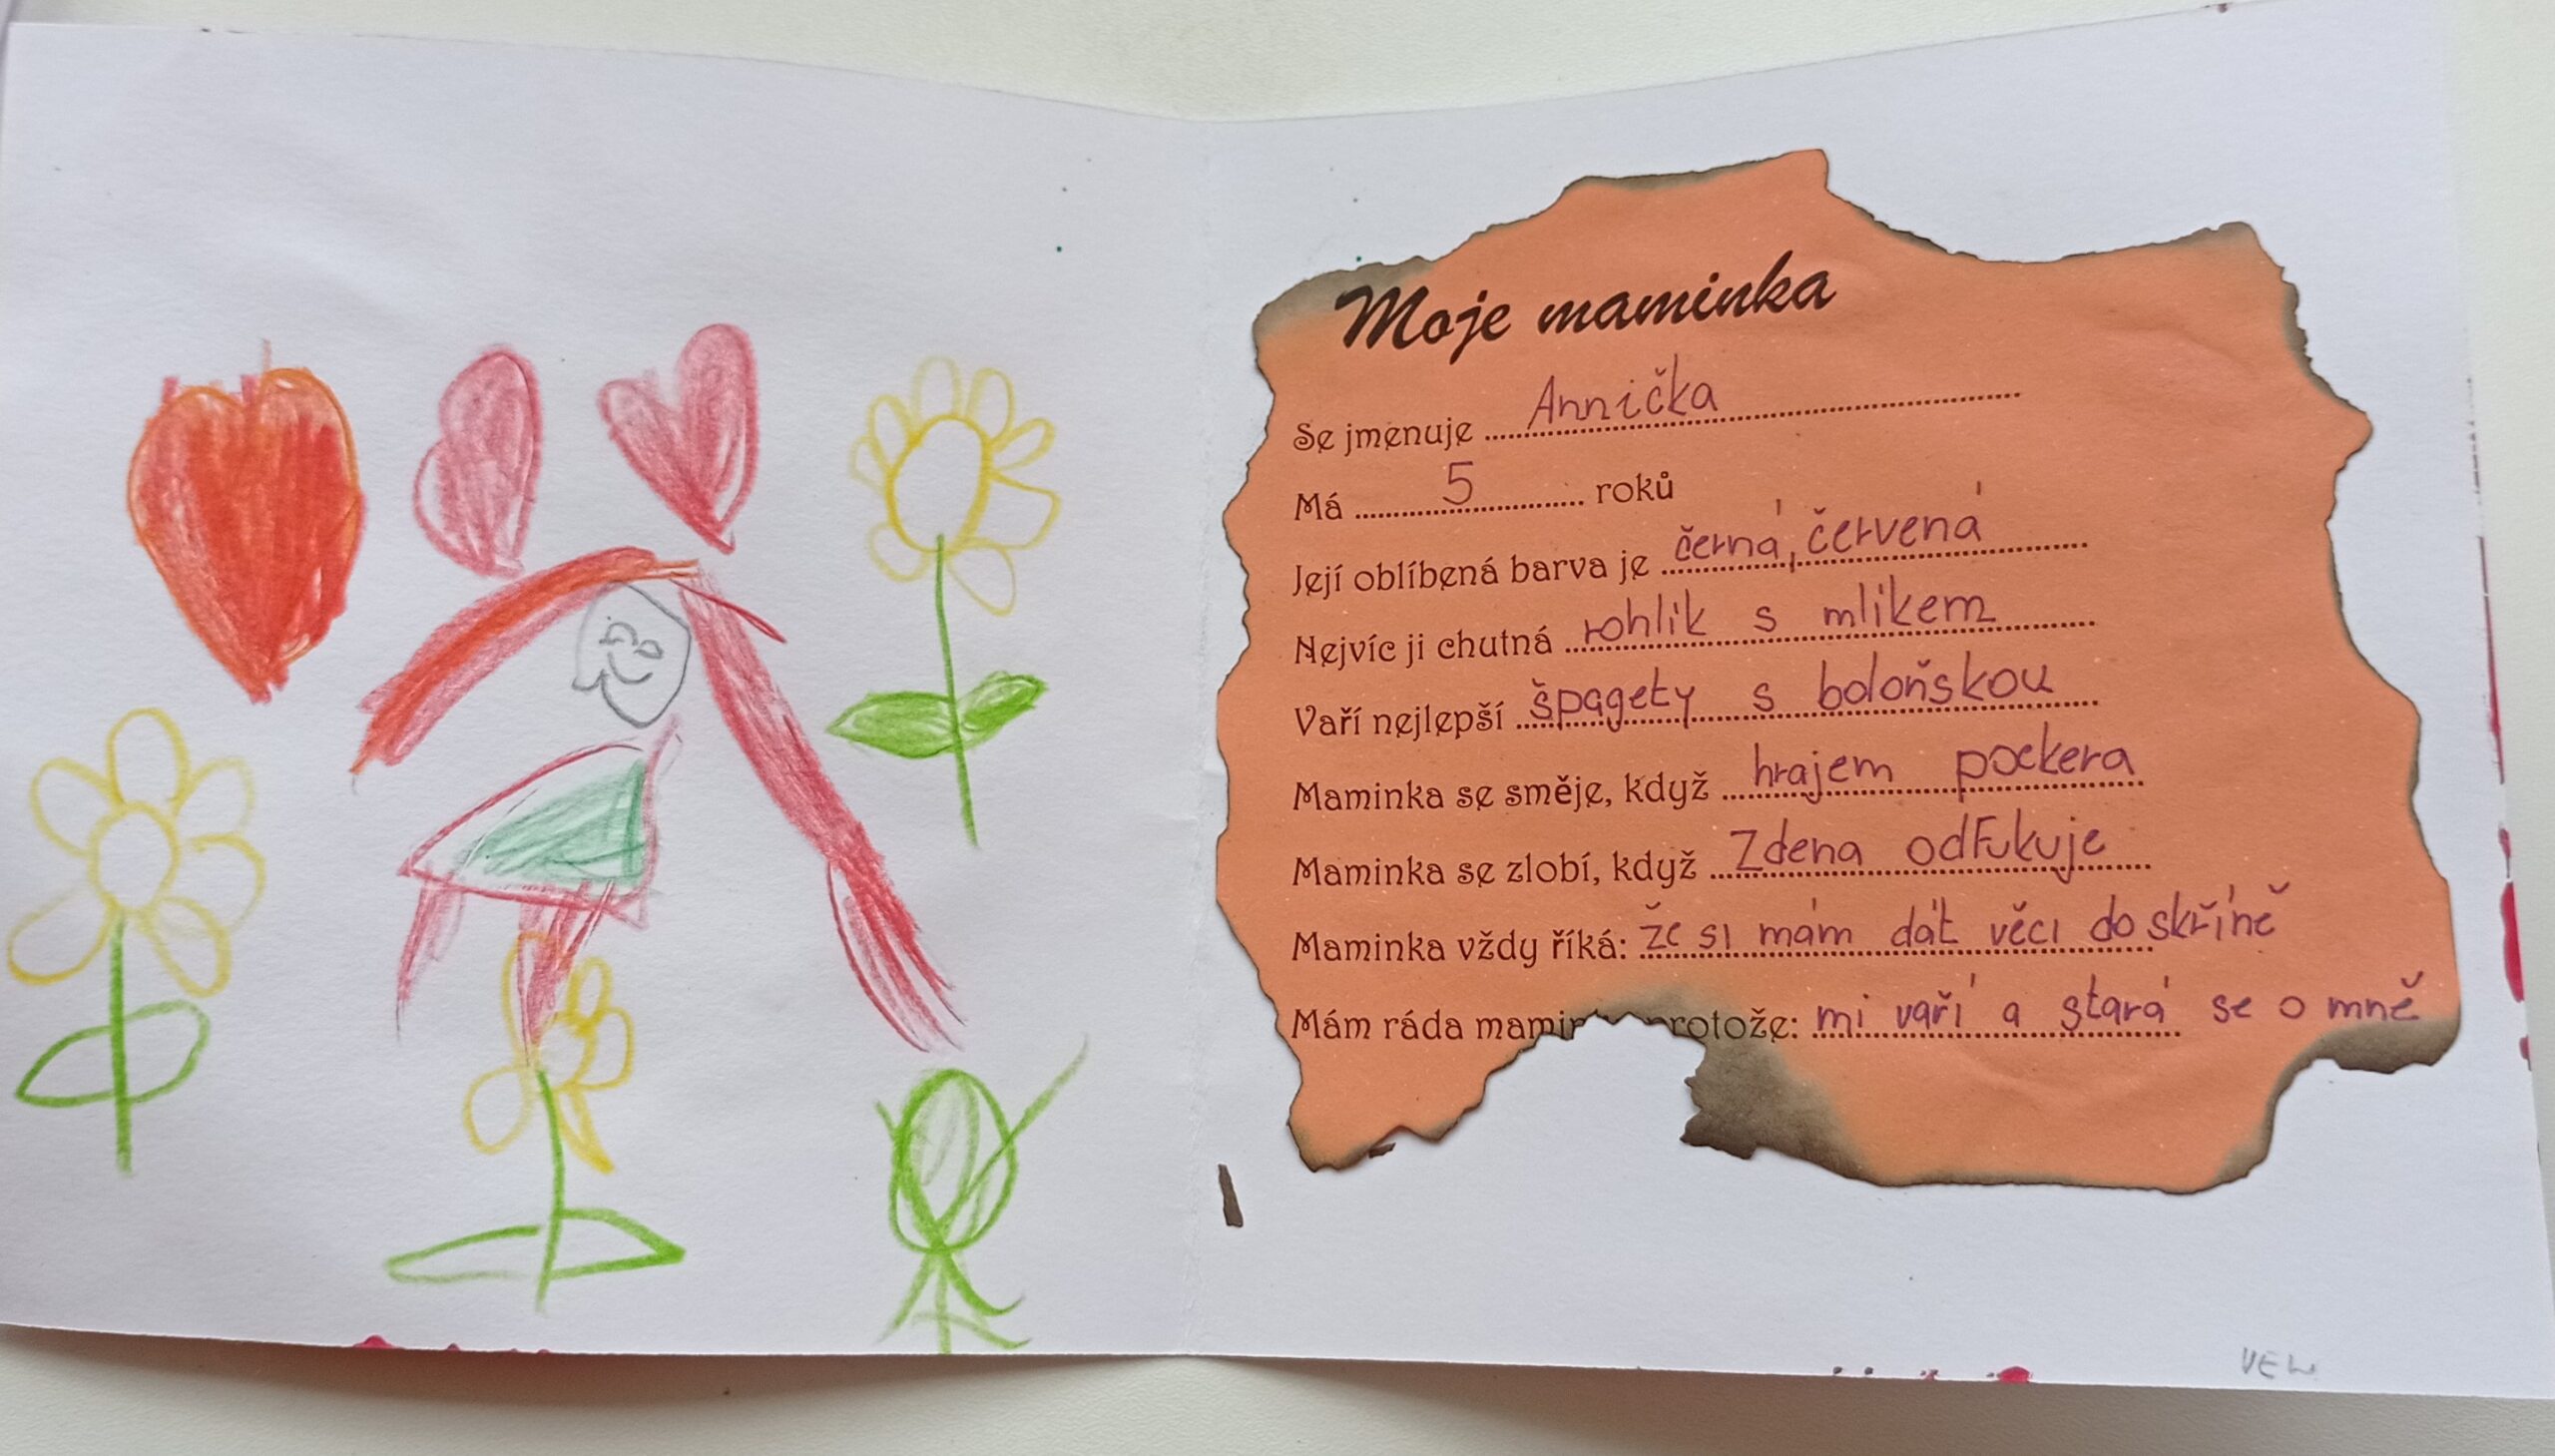 Moje maminka
Se jmenuje Annička
Má 5 roků
Její oblíbená barva je černá, červená
Nejvíc ji chutná rohlík s mlíkem
Vaří nejlepší špagety s boloňskou
Maminka se směje, když hrajem pockera
Maminka se zlobí, když Zdena odfukuje
Maminka vždy říká: že si mám dát věci do skříně
Mám ráda protože: mi vaří a stará se o mně